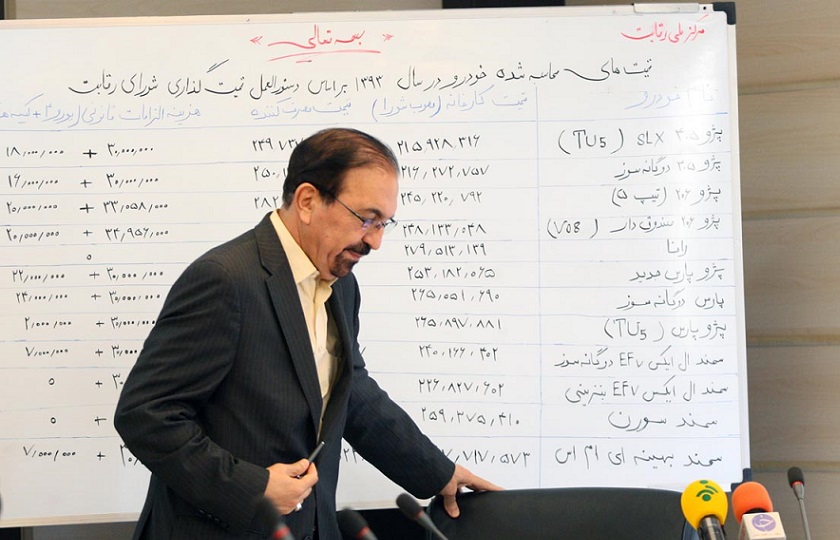 مرکز ملی رقابت
« بسمه تعالی »
قیمت های محاسبه شده خودرو در سال ۱۳۹۳ بر اساس دستورالعمل قیمت گذاری شورای رقابت
نام خودرو قیمت کارخانه (مصوب شورا) قیمت مصرف کننده هزینه الزامات قانونی
پژو ۴۰۵ SLX (TU5) ۲۱۵٬۹۲۸٬۳۱۶ ۲۴۹٬۷۳۷ ۳۰٬۰۰۰٬۰۰۰ + ۱۸٬۰۰۰٬۰۰۰
پژو ۴۰۵ دوگانه سوز ۲۱۶٬۲۷۲٬۷۵۷ ۲۵۰٬ ۳۰٬۰۰۰٬۰۰۰ + ۱۶٬۰۰۰٬۰۰۰
پژو ۲۰۶ (تیپ ۵) ۲۴۵٬۲۲۰٬۷۹۲ ۲۸۲ ۳۳٬۰۵۸٬۰۰۰ + ۲۰٬۰۰۰٬۰۰۰
پژو ۲۰۶ صندوق دار (V08) ۲۴۸٬۱۳۳٬۰۴۸ ۳۴٬۹۵۶٬۰۰۰ + ۲۰٬۰۰۰٬۰۰۰
رانا ۲۷۹٬۵۱۳٬۱۳۹ ۰
پژو پارس جدید ۲۵۳٬۱۸۲٬۰۶۵ ۳۰٬۰۰۰٬۰۰۰ + ۲۲٬۰۰۰٬۰۰۰
پارس دوگانه سوز ۲۶۵٬۰۵۱٬۶۹۰ ۳۰٬۰۰۰٬۰۰۰ + ۲۴٬۰۰۰٬۰۰۰
پژو پارس (TU5) ۲۶۵٬۸۹۷٬۸۸۱ ۳۰٬۰۰۰٬۰۰ + ۲٬۰۰۰٬۰۰۰
سمند ال ایکس EF۷ دوگانه سوز ۲۴۰٬۱۶۶٬۴۰۲ ۳۰٬۰۰ + ۷٬۰۰۰٬۰۰۰
سمند ال ایکس EF۷ بنزینی ۲۲۶٬۸۲۷٬۶۰۲ ۳۰ + ۰
سمند سورن ۲۵۹٬۳۷۵٬۴۱۰ + ۰
سمند بهینه ای ام اس ۷٬۷۱۷٬۵۷۳ + ۷٬۰۰۰٬۰۰۰